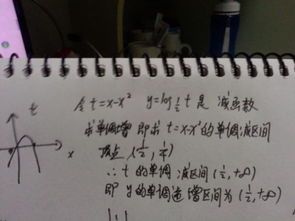 t
x
令 t=x-x² y=log½t 是 减函数
求单调增 即求 t=x-x²的单调减区间
顶点 (½, ¼)
∴ t 的单调 减区间 (½, +∞)
即 y 的单调递增区间为 (½, +∞)